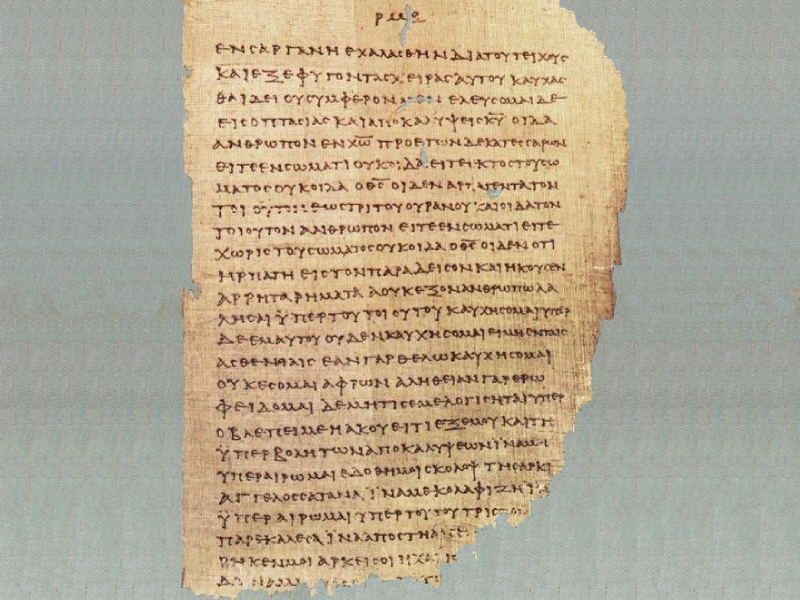 ΕΝ ϹΑΡΓΑΝΗ ΕΧΑΛΑϹΘΗΝ ΔΙΑ ΤΟΥ ΤΕΙΧΟΥϹ
ΚΑΙ ΕΞΕΦΥΓΟΝ ΤΑϹ ΧΕΙΡΑϹ ΑΥΤΟΥ ΚΑΥΧΑϹ
ΘΑΙ ΔΕΙ ΟΥ ϹΥΜΦΕΡΟΝ ΕΛΕΥϹΟΜΑΙ ΔΕ
ΕΙϹ ΟΠΤΑϹΙΑϹ ΚΑΙ ΑΠΟΚΑΛΥΨΕΙϹ Κ̅Υ̅ ΟΙΔΑ
ΑΝΘΡΩΠΟΝ ΕΝ Χ̅Ω̅ ΠΡΟ ΕΤΩΝ ΔΕΚΑΤΕϹϹΑΡΩΝ
ΕΙΤΕ ΕΝ ϹΩΜΑΤΙ ΟΥΚ ΟΙΔΑ ΕΙΤΕ ΕΚΤΟϹ ΤΟΥ ϹΩ
ΜΑΤΟϹ ΟΥΚ ΟΙΔΑ Ο Θ̅Ϲ̅ ΟΙΔΕΝ ΑΡΠΑΓΕΝΤΑ ΤΟΝ
ΤΟΙΟΥΤΟΝ ΕΩϹ ΤΡΙΤΟΥ ΟΥΡΑΝΟΥ ΚΑΙ ΟΙΔΑ ΤΟΝ
ΤΟΙΟΥΤΟΝ ΑΝΘΡΩΠΟΝ ΕΙΤΕ ΕΝ ϹΩΜΑΤΙ ΕΙΤΕ
ΧΩΡΙϹ ΤΟΥ ϹΩΜΑΤΟϹ ΟΥΚ ΟΙΔΑ Ο Θ̅Ϲ̅ ΟΙΔΕΝ ΟΤΙ
ΗΡΠΑΓΗ ΕΙϹ ΤΟΝ ΠΑΡΑΔΕΙϹΟΝ ΚΑΙ ΗΚΟΥϹΕΝ
ΑΡΡΗΤΑ ΡΗΜΑΤΑ Α ΟΥΚ ΕΞΟΝ ΑΝΘΡΩΠΩ ΛΑ
ΛΗϹΑΙ ΫΠΕΡ ΤΟΥ ΤΟΙΟΥΤΟΥ ΚΑΥΧΗϹΟΜΑΙ ΥΠΕΡ
ΔΕ ΕΜΑΥΤΟΥ ΟΥΔΕΝ ΚΑΥΧΗϹΟΜΑΙ ΕΙ ΜΗ ΕΝ ΤΑΙϹ
ΑϹΘΕΝΕΙΑΙϹ ΕΑΝ ΓΑΡ ΘΕΛΩ ΚΑΥΧΗϹΟΜΑΙ
ΟΥΚ ΕϹΟΜΑΙ ΑΦΡΩΝ ΑΛΗΘΕΙΑΝ ΓΑΡ ΕΡΩ
ΦΕΙΔΟΜΑΙ ΔΕ ΜΗ ΤΙϹ ΕΜΕ ΛΟΓΙϹΗΤΑΙ ΥΠΕΡ
Ο ΒΛΕΠΕΙ ΜΕ Η ΑΚΟΥΕΙ ΤΙ ΕΞ ΕΜΟΥ ΚΑΙ ΤΗ
ΫΠΕΡΒΟΛΗ ΤΩΝ ΑΠΟΚΑΛΥΨΕΩΝ ΪΝΑ ΜΗ
ΥΠΕΡΑΙΡΩΜΑΙ ΕΔΟΘΗ ΜΟΙ ϹΚΟΛΟΨ ΤΗ ϹΑΡΚΙ
ΑΓΓΕΛΟϹ ϹΑΤΑΝΑ ΪΝΑ ΜΕ ΚΟΛΑΦΙΖΗ Ϊ
ΫΠΕΡΑΙΡΩΜΑΙ ΥΠΕΡ ΤΟΥΤΟΥ ΤΡΙϹ
ΠΑΡΕΚΑΛΕϹΑ ΪΝΑ ΑΠΟϹΤΗ
ΡΗΚΕΝ ΜΟΙ ΑΡΚΕΙ ϹΟΙ Η ΧΑΡΙϹ
ΔΥΝΑΜΙϹ